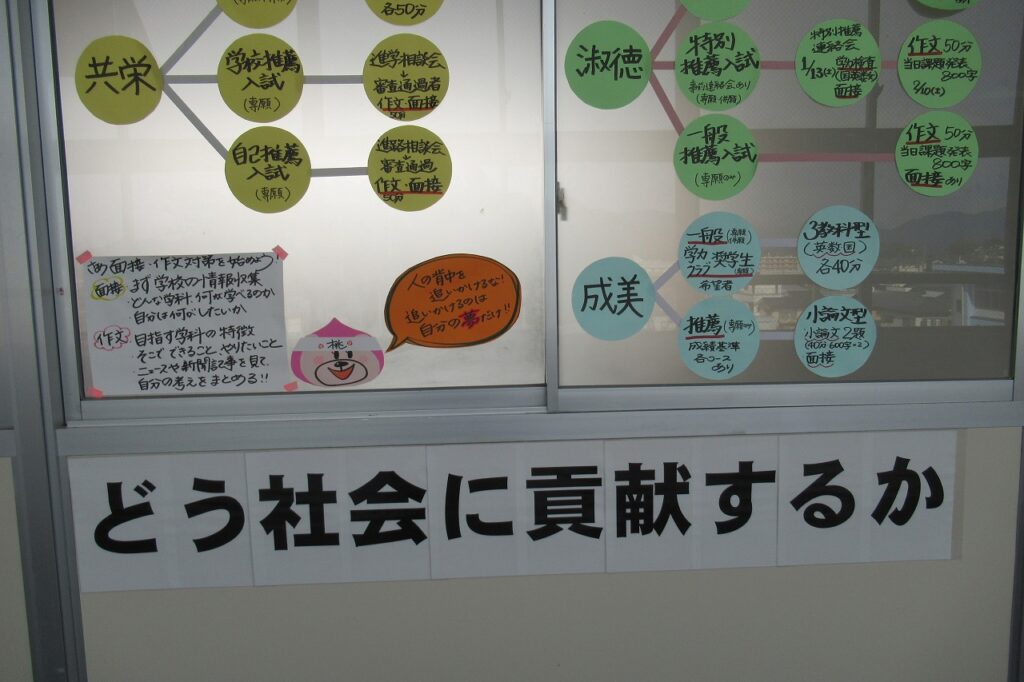 各50分
共栄
学校推薦
入試
(専願)
進学相談会
審査通過者
作文・面接
50分
自己推薦
入試
(専願)
進路相談会
審査通過
作文・面接
50分
淑徳
特別
推薦入試
事前連絡会あり
(専願・併願)
特別推薦
連絡会
1/13(土)
面接
作文 50分
当日課題発表
800字
2/10(土)
一般
推薦入試
(専願のみ)
作文 50分
当日課題発表
800字
面接あり
成美
一般
学力・奨学生
希望者
3教科型
(英数国)
各40分
推薦(専願のみ)
成績基準
各コース
あり
小論文型
小論文2題
(40分 600字×2)
面接
さあ面接・作文対策を始めよう!
面接
まず学校の情報収集
どんな学科、何が学べるのか
自分は何がしたいか
作文
目指す学科の特徴
そこでできること、やりたいこと
ニュースや新聞記事を見て、
自分の考えをまとめる!!
桃
人の背中を
追いかけるな!
追いかけるのは
自分の夢だけ!!
どう社会に貢献するか